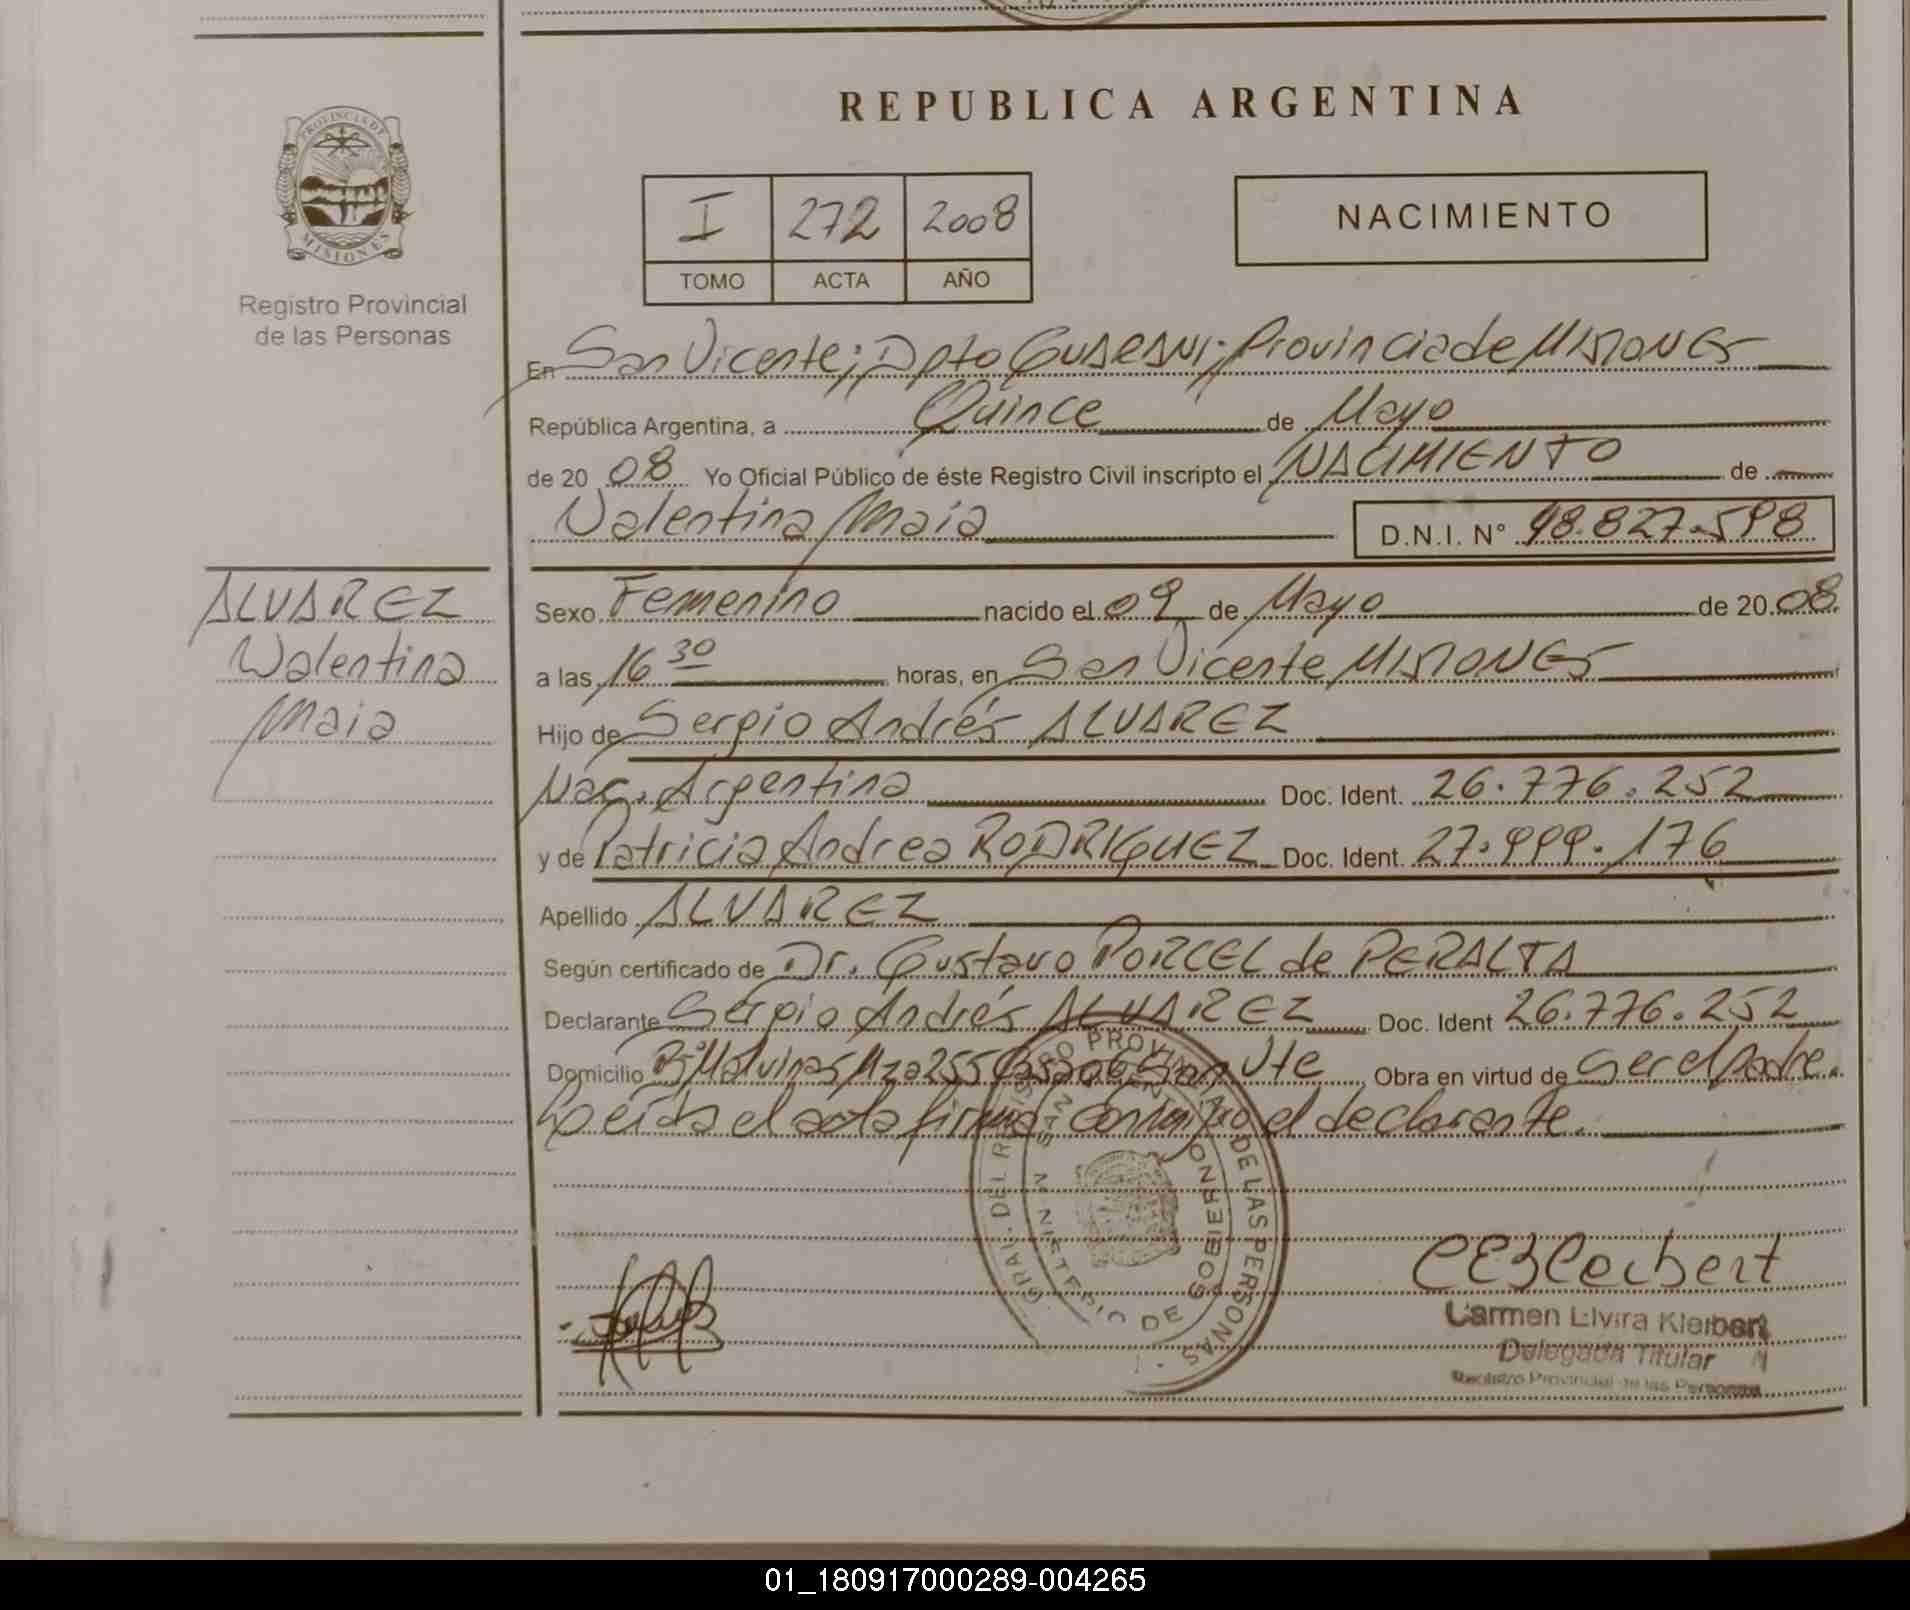 REPUBLICA ARGENTINA
PROVINCIA DE
MISIONES
Registro Provincial
de las Personas
I 272 2008
TOMO ACTA AÑO
NACIMIENTO
En San Vicente; Dpto GUARANI; Provincia de MISIONES
República Argentina, a Quince de Mayo
de 20 08 Yo Oficial Público de éste Registro Civil inscripto el NACIMIENTO de
Valentina Maia D.N.I. N° 48.827.598
ALVAREZ
Valentina
Maia
Sexo Femenino nacido el 09 de Mayo de 20 08
a las 16 30 horas, en San Vicente MISIONES
Hijo de Sergio Andrés ALVAREZ
Nac. Argentina Doc. Ident. 26.776.252
y de Patricia Andrea RODRIGUEZ Doc. Ident. 27.999.176
Apellido ALVAREZ
Según certificado de Dr. Gustavo PORCEL de PERALTA
Declarante Sergio Andrés ALVAREZ Doc. Ident 26.776.252
Domicilio Bº Malvinas Mza 255 San Vte Obra en virtud de ser el Padre.
Leída el acta firma conmigo el declarante.
GRAL. DEL REGISTRO PROVINCIAL DE LAS PERSONAS
MINISTERIO DE GOBIERNO
SAN VICENTE
CEKleibert
Carmen Elvira Kleibert
Delegada Titular
Registro Provincial de las Personas
01_180917000289-004265